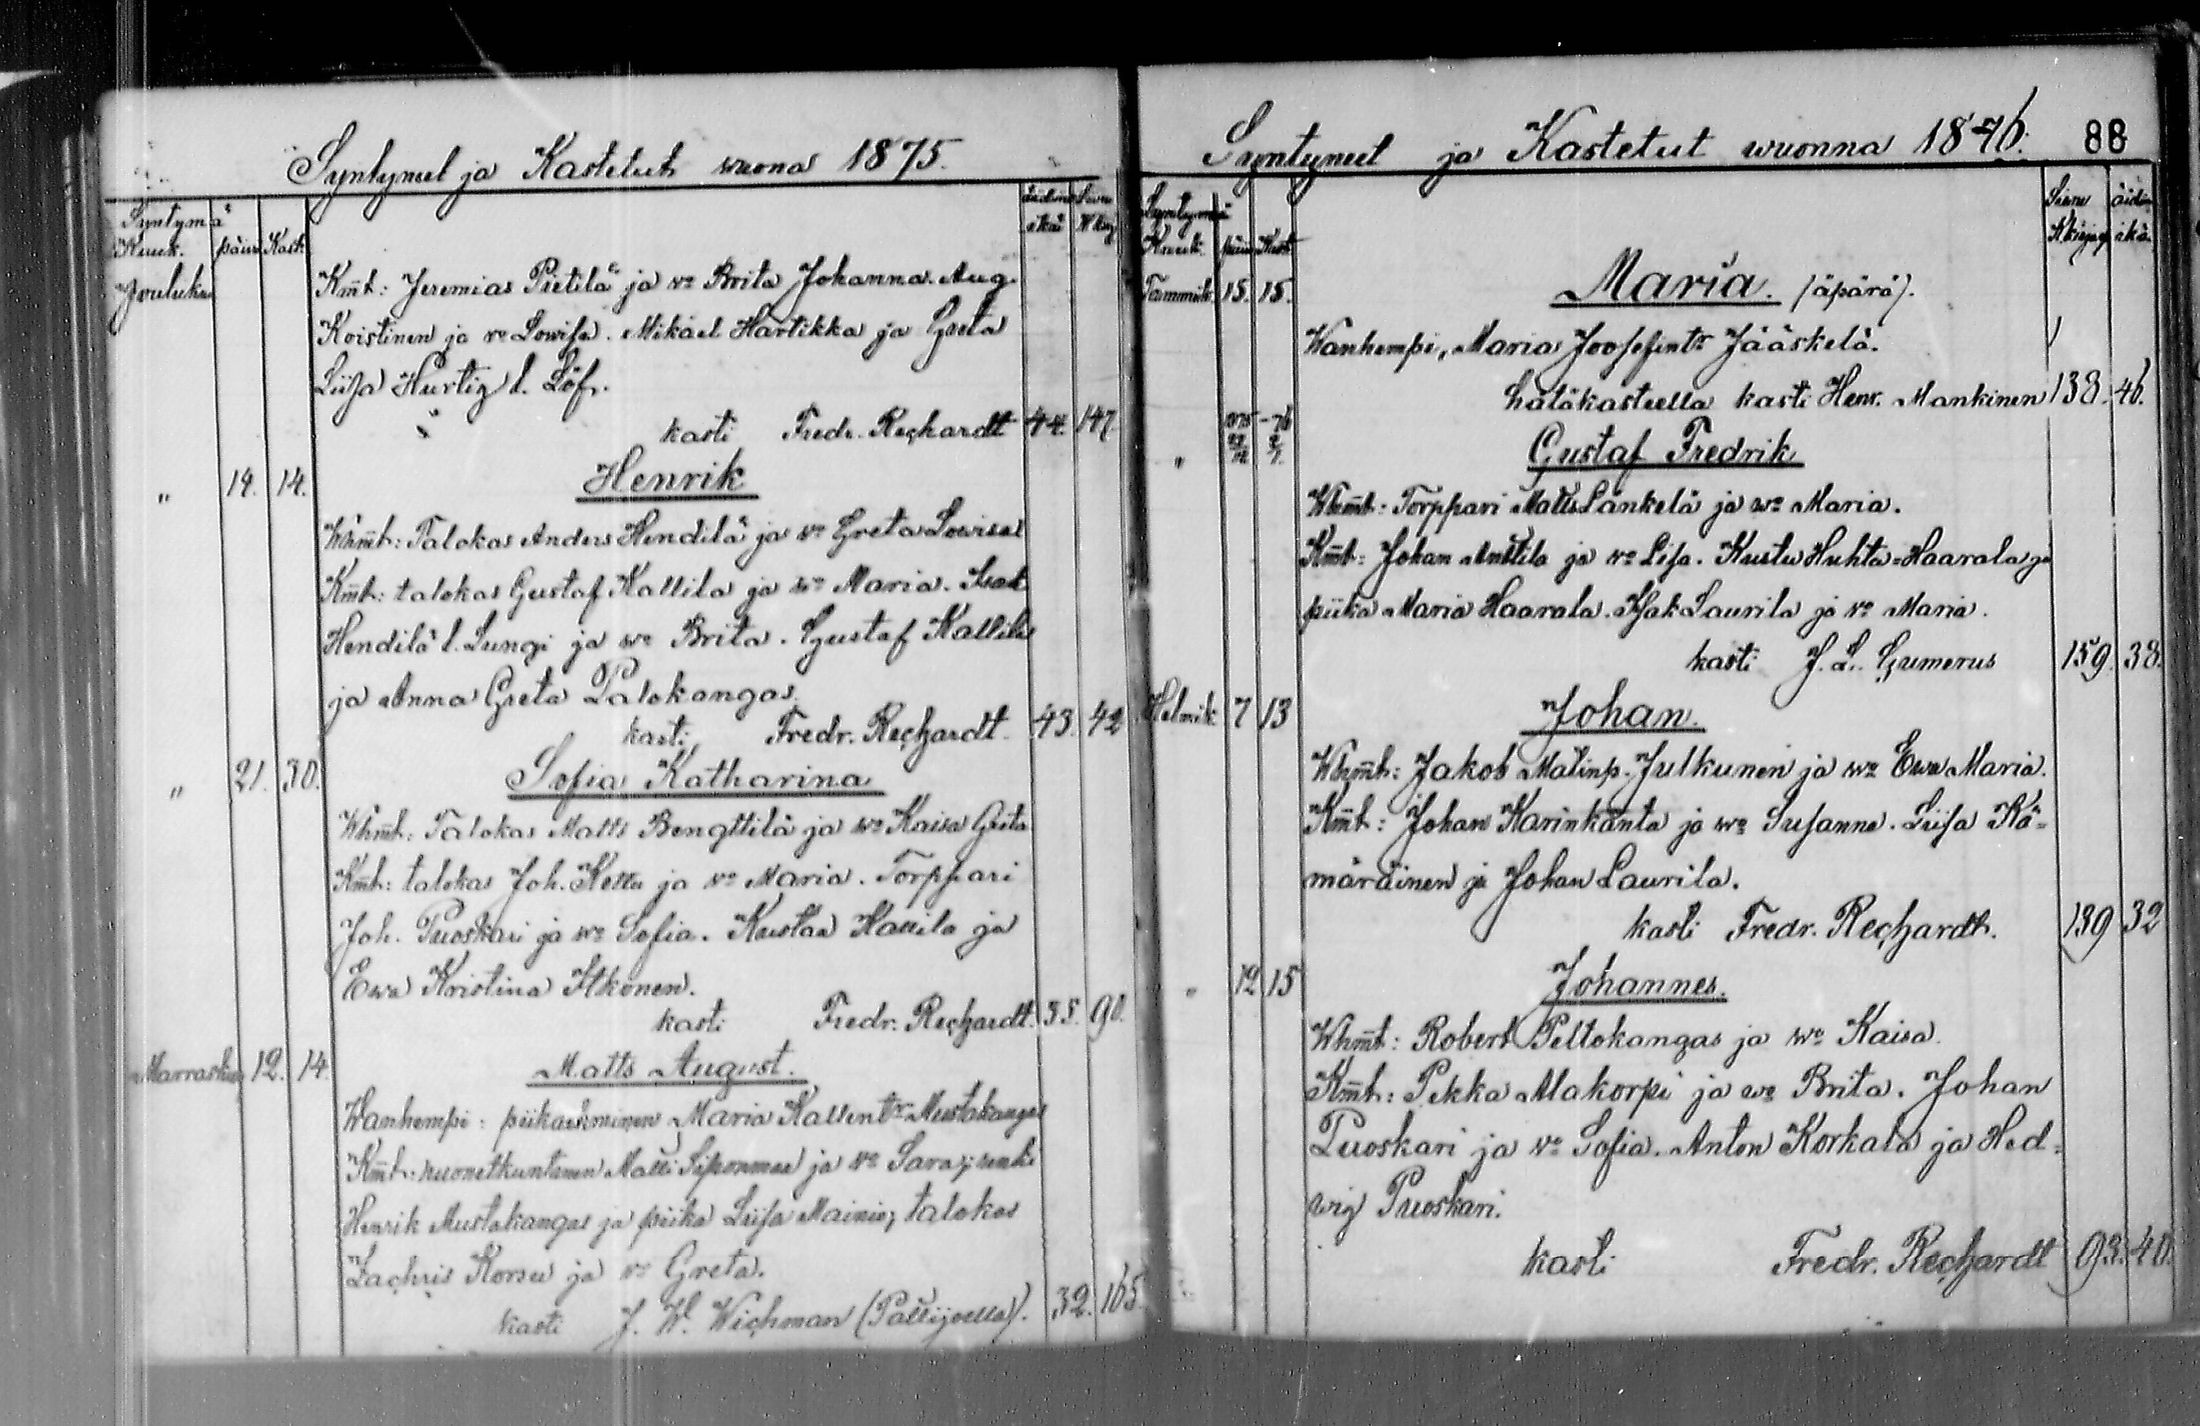 Syntyneet ja Kastetut wuona 1875.
Syntymä
Kuuk. päivä Kast.
äidin ikä
Jouluku
Kmt: Jeremias Pietilä ja vo Brita Johanna. Aug.
Koistinen ja vo Lowisa. Mikael Hartikka ja Greta
Liisa Hurtig l. Löf.
kasti Fredr. Rechardt 44. 147
" 14. 14. Henrik
Whmt: Talokas Anders Hendilä ja vo Greta Lowisa
Kmt: talokas Gustaf Kallila ja wo Maria. Isak
Hendilä l. Lungi ja wo Brita. Gustaf Kallila
ja Anna Greta Palokangas.
kasti Fredr. Rechardt. 43. 42
" 21. 30. Sofia Katharina
Whmt: Talokas Matts Bengttilä ja wo Kaisa Greta
Kmt: talokas Joh. Kellu ja vo Maria. Torppari
Joh. Puoskari ja wo Sofia. Kustaa Kallila ja
Ewa Kristina Itkonen.
kasti Fredr. Rechardt. 35. 90.
Marrasku 12. 14. Matts August.
Wanhempi: piika Maria Kallentr Mustakangas
Kmt: Matti Siponmaa ja vo Sara; renki
Henrik Mustakangas ja piika Liisa Mainio; talokas
Zachris Korsu ja vo Greta.
kasti J. W. Wichman (Pallijoella). 32. 165.
Syntyneet ja Kastetut wuonna 1876. 88
Syntymä
Kuuk. päivä Kast.
Siwu Kkirja äidin ikä
Tammik. 15. 15. Maria. (äpärä).
Wanhempi, Maria Joosefintr Jääskelä.
hätäkasteella kasti Henr. Mankinen 138. 46.
1875 -76
" Gustaf Fredrik
Whmt: Torppari Matts Länkelä ja wo Maria.
Kmt: Johan Anttila ja vo Lisa. Kustu Huhta-Haarala ja
piika Maria Haarala. Isak Laurila ja vo Maria.
kasti J. L. Gumerus 159. 38.
Helmik. 7 13 Johan.
Whmt: Jakob Matinp. Julkunen ja wo Ewa Maria.
Kmt: Johan Karinkanta ja wo Susanna. Liisa Kä-
märäinen ja Johan Laurila.
kasti Fredr. Rechardt. 139 32
" 12 15 Johannes.
Whmt: Robert Peltokangas ja wo Kaisa.
Kmt: Pekka Alakorpi ja wo Brita. Johan
Puoskari ja vo Sofia. Anton Korkala ja Hed-
wig Puoskari.
kasti Fredr. Rechardt 93. 40.